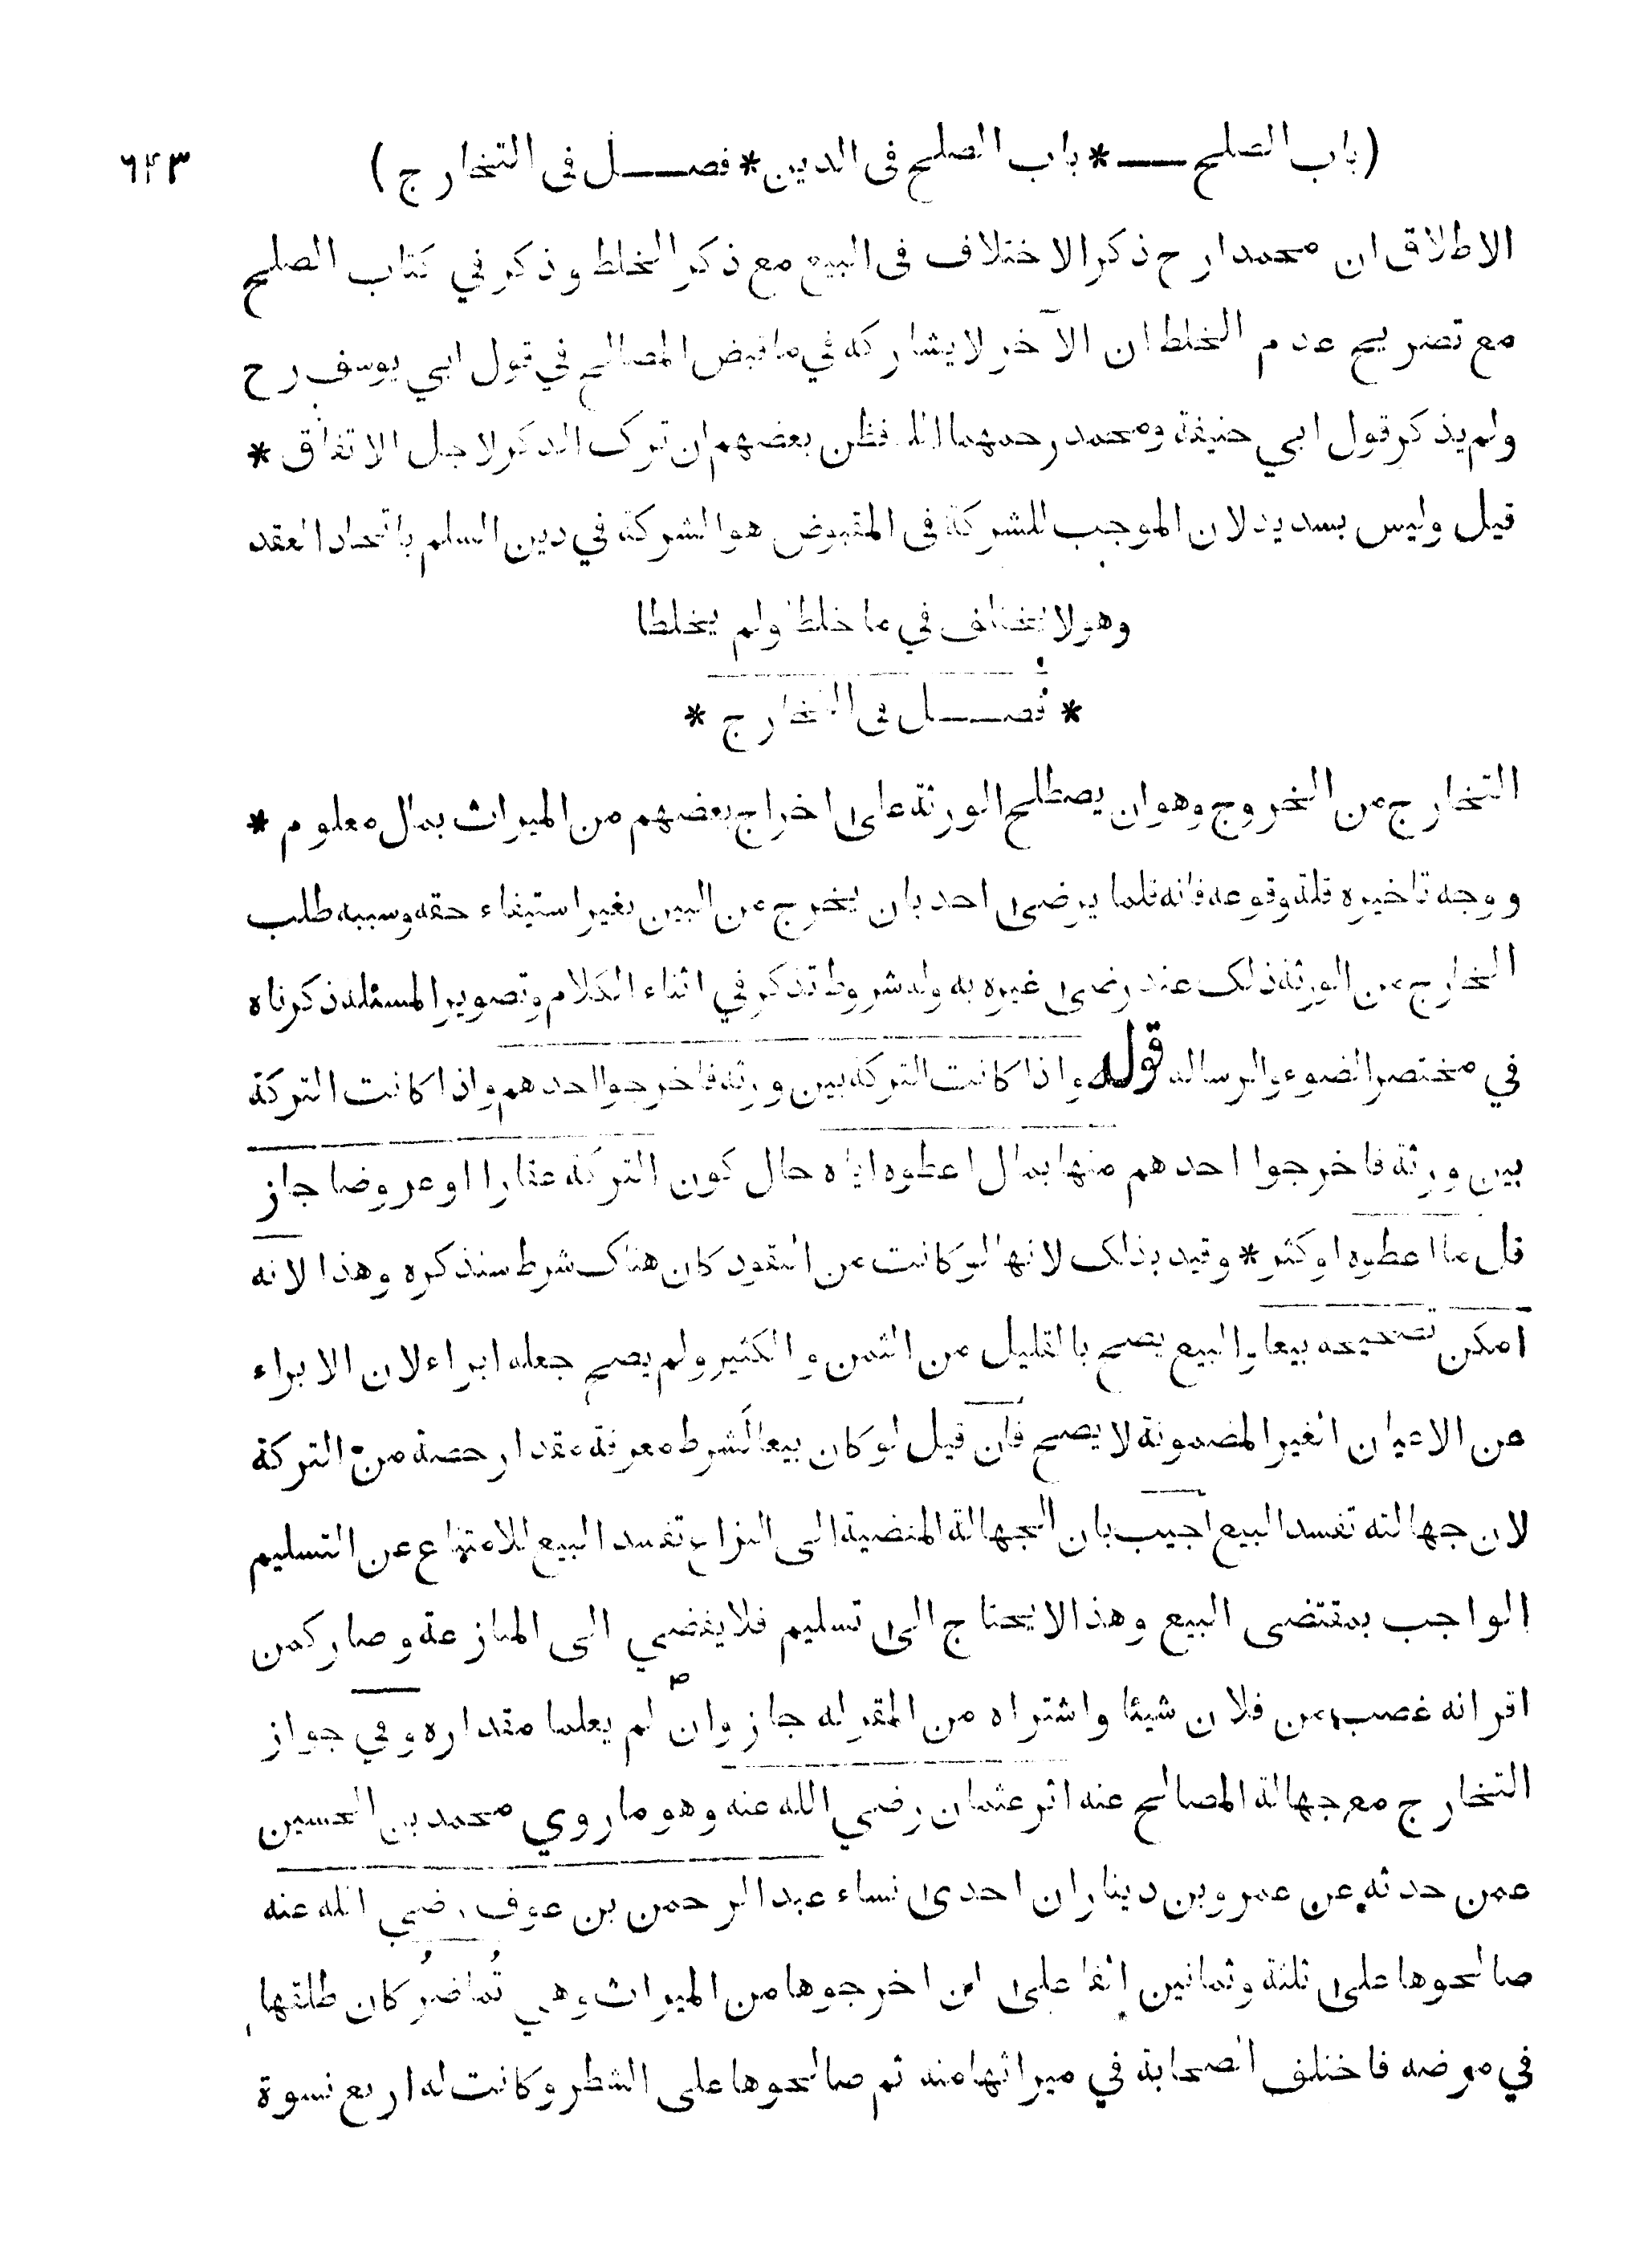 (باب الصلح * باب الصلح في الدين * فصل في التخارج) ٦٤٣
الاطلاق ان محمدا رح ذكر الاختلاف في البيع مع ذكر الخلط وذكر في كتاب الصلح
مع تصريح عدم الخلط ان الآخر لا يشاركه في ما قبض المصالح في قول ابي يوسف رح
ولم يذكر قول ابي حنيفة ومحمد رحمهما الله فظن بعضهم ان ترك الذكر لاجل الاتفاق *
قيل وليس بسديد لان الموجب للشركة في المقبوض هو الشركة في دين السلم باتحاد العقد
وهو لا يختلف في ما خلطا ولم يخلطا
* فصل في التخارج *
التخارج من الخروج وهو ان يصطلح الورثة على اخراج بعضهم من الميراث بمال معلوم *
ووجه تاخيره قلة وقوعه فانه قلما يرضى احد بان يخرج من البين بغير استيفاء حقه وسببه طلب
الخارج من الورثة ذلك عند رضى غيره به وله شروط تذكر في اثناء الكلام وتصوير المسئلة ذكرناه
في مختصر الضوء والرسالة قوله واذا كانت التركة بين ورثة فاخرجوا احدهم واذا كانت التركة
بين ورثة فاخرجوا احدهم منها بمال اعطوه اياه حال كون التركة عقارا او عروضا جاز
قل ما اعطوه او كثر * وقيد بذلك لانها لو كانت من النقود كان هناك شرط سنذكره وهذا لانه
امكن تصحيحه بيعا والبيع يصح بالقليل من الثمن والكثير ولم يصح جعله ابراء لان الابراء
عن الاعيان الغير المضمونة لا يصح فان قيل لو كان بيعا لشرط معرفة مقدار حصته من التركة
لان جهالته تفسد البيع اجيب بان الجهالة المفضية الى النزاع تفسد البيع للامتناع عن التسليم
الواجب بمقتضى البيع وهذا لا يحتاج الى تسليم فلا يفضي الى المنازعة وصار كمن
اقر انه غصب من فلان شيئا واشتراه من المقر له جاز وان لم يعلما مقداره وفي جواز
التخارج مع جهالة المصالح عنه اثر عثمان رضي الله عنه وهو ما روي محمد بن الحسين
عمن حدثه عن عمرو بن دينار ان احدى نساء عبد الرحمن بن عوف رضي الله عنه
صالحوها على ثلثة وثمانين الفا على ان اخرجوها من الميراث وهي تُماضرُ كان طلقها
في مرضه فاختلف الصحابة في ميراثها منه ثم صالحوها على الشطر وكانت له اربع نسوة